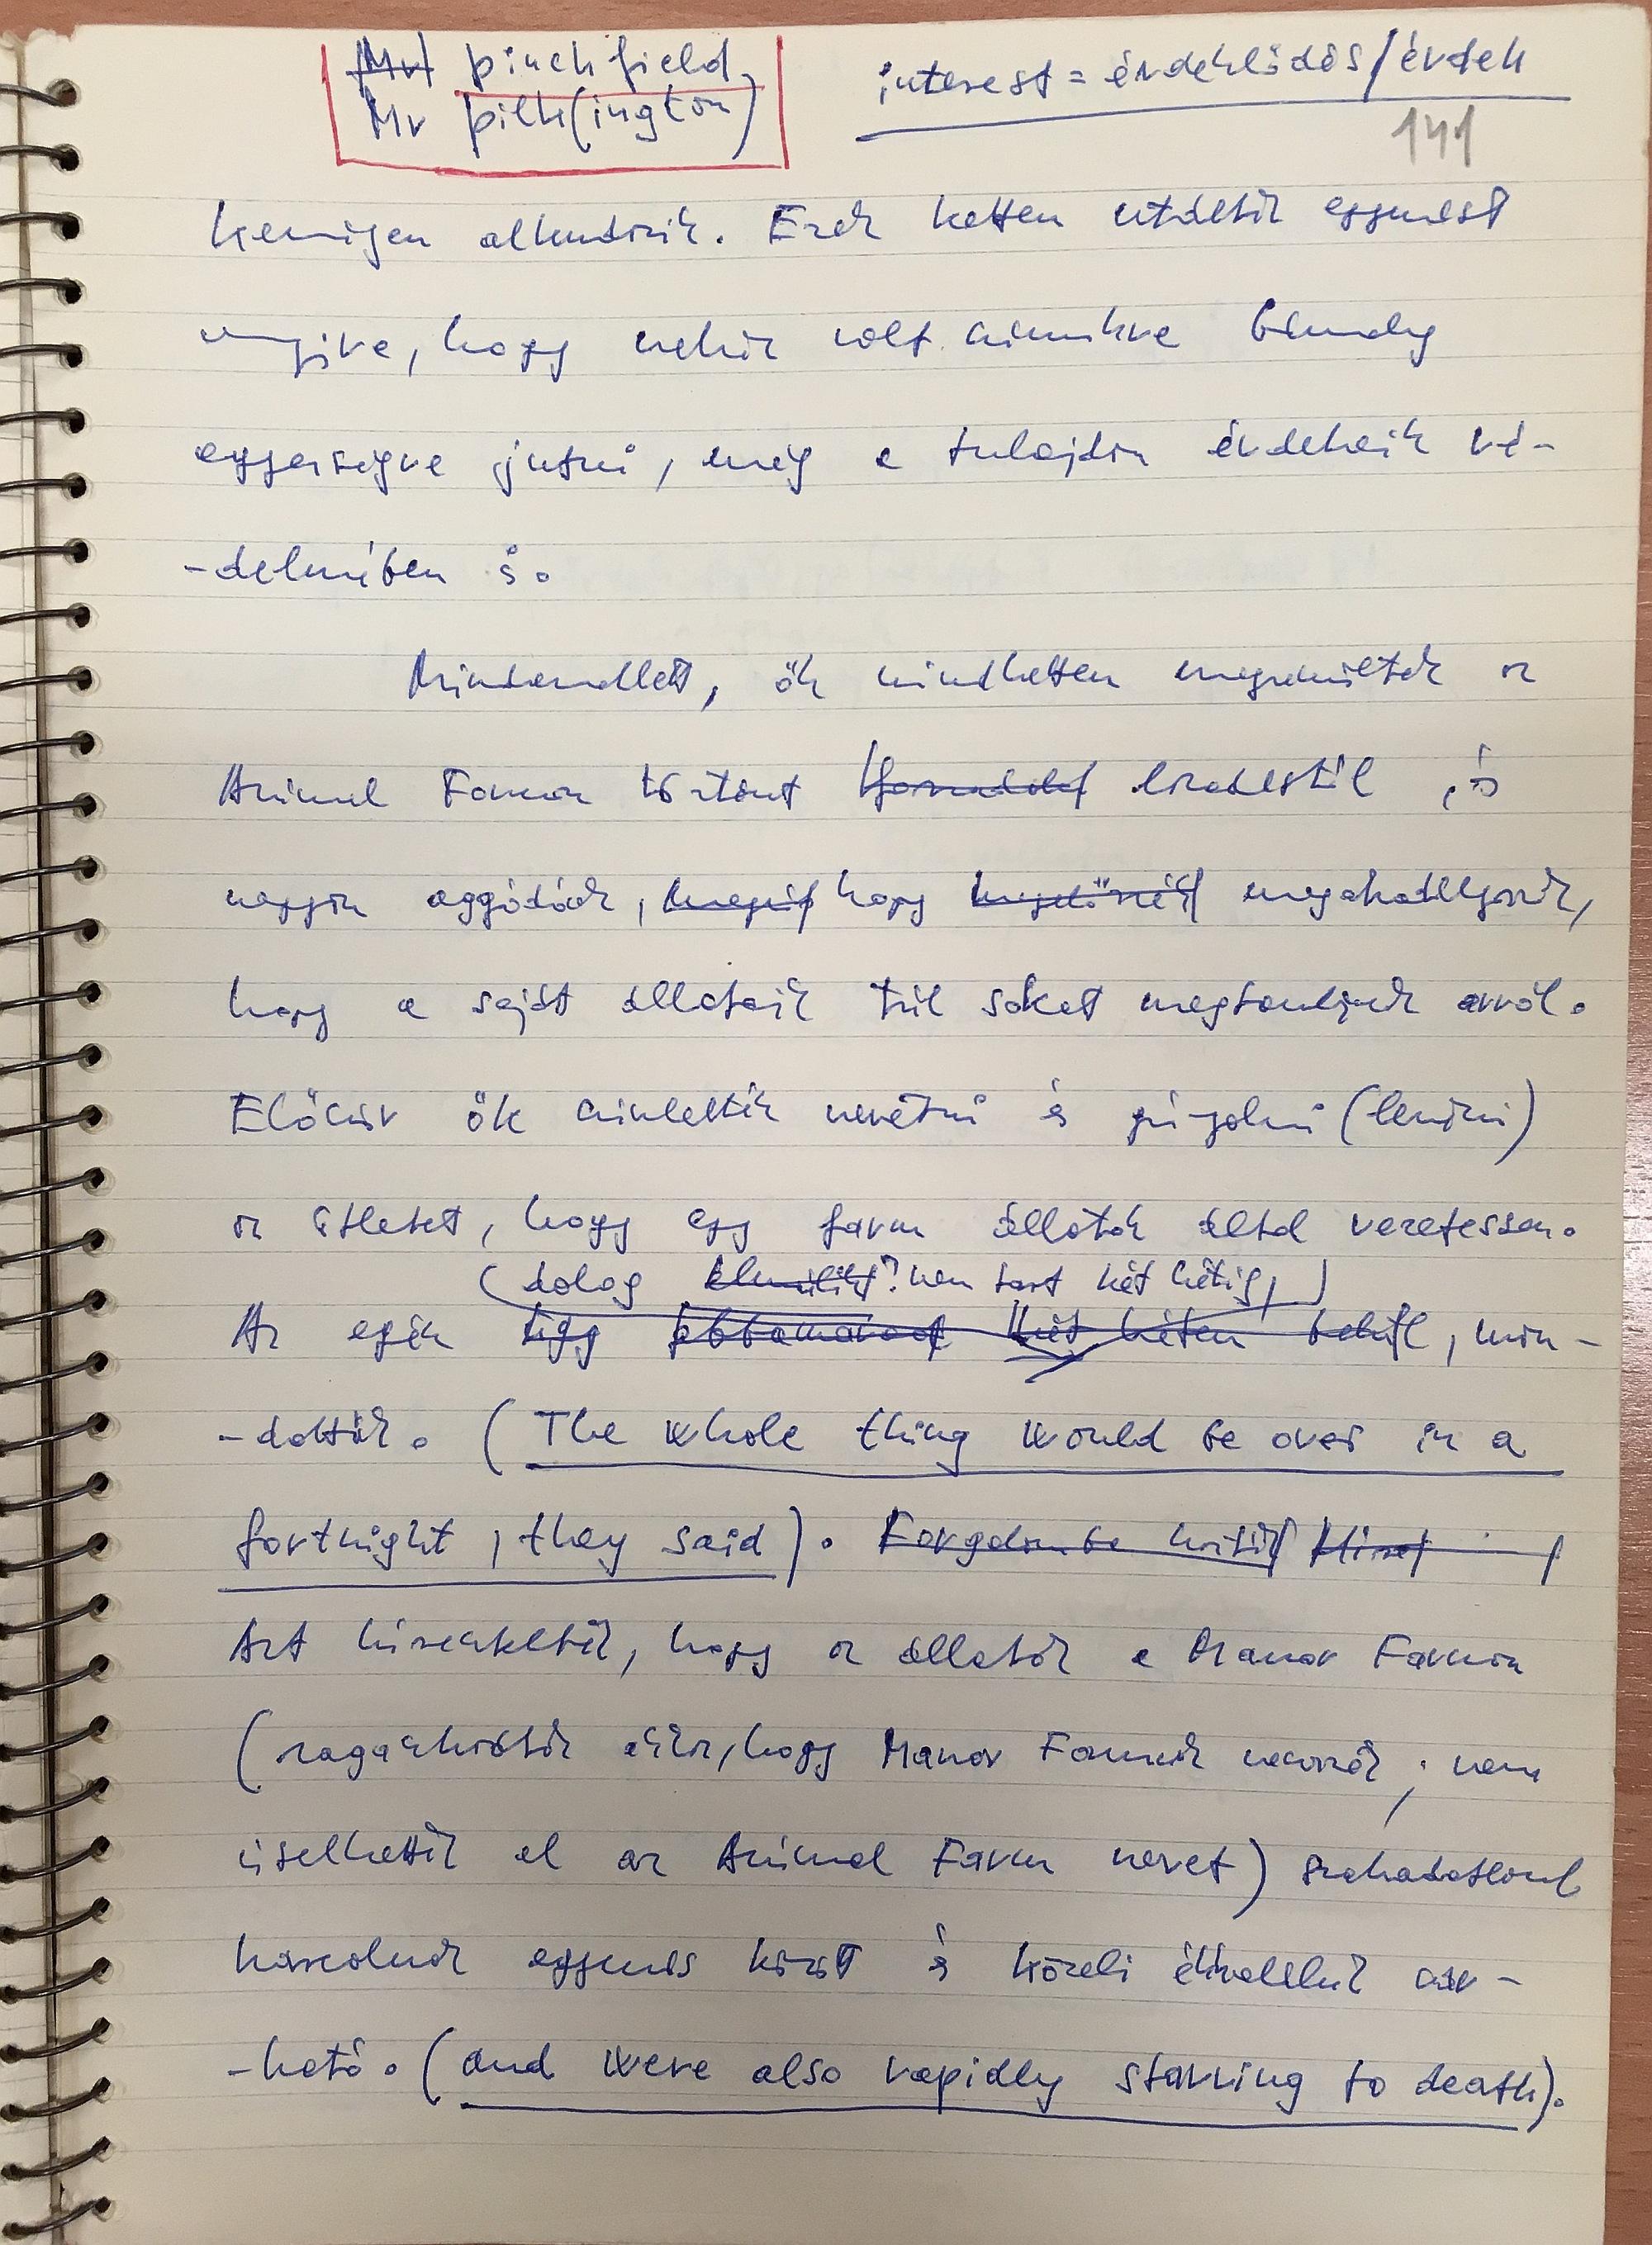 Mr pinchfield
Mr pilk(ington)
interest = érdeklődés/érdek
141
keményen alkudozik. Ezek ketten utálták egymást
annyira, hogy nehéz volt
egyezségre jutni, még a tulajdon érdekeik vé-
-delmében is.
Mindamellett, ők mindketten megrémültek az
Animal Farmon történt lázadástól, és
nagyon aggódóak, hogy megakadályozzák,
hogy a saját állataik túl sokat megtanuljanak arról.
Először ők nevetni és gúnyolni (lenézni)
az ötletet, hogy egy farm állatok által vezetessen.
(dolog nem tart két hétig,)
Az egész úgy két héten belül, mon-
-dották. (The whole thing would be over in a
fortnight, they said).
Azt híresztelték, hogy az állatok a Manor Farmon
(ragaszkodtak ahhoz, hogy Manor Farmnak nevezzék; nem
viselhették el az Animal Farm nevet) szakadatlanul
harcolnak egymás között és közeli éhhaláluk vár-
-ható. (and were also rapidly starving to death).